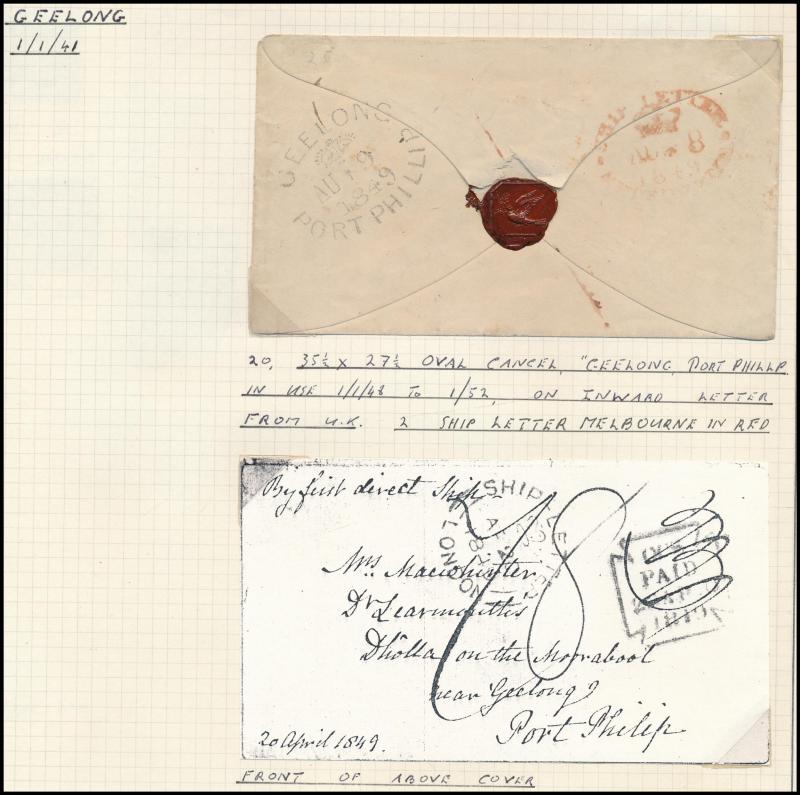 GEELONG
1/1/41
GEELONG
AU 19
1849
PORT PHILLIP
SHIP LETTER
AU 8
20, 35½ x 27½ OVAL CANCEL, "GEELONG, PORT PHILLP
IN USE 1/1/48 TO 1/52, ON INWARD LETTER
FROM U.K. 2 SHIP LETTER MELBOURNE IN RED
By first direct Ship
SHIP LETTER
LONDON
PAID
Mrs. Macwhirter
Dr Learmonth's
Dholla on the Moorabool
near Geelong
Port Philip
20 April 1849.
FRONT OF ABOVE COVER